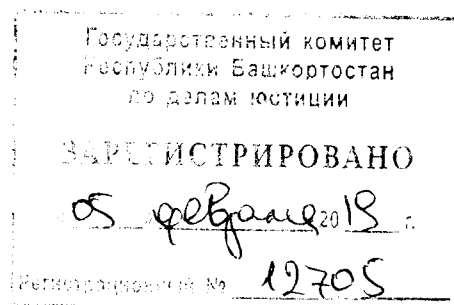 Государственный комитет
Республики Башкортостан
по делам юстиции
ЗАРЕГИСТРИРОВАНО
05 февраля 2019 г.
Регистрационный № 12705